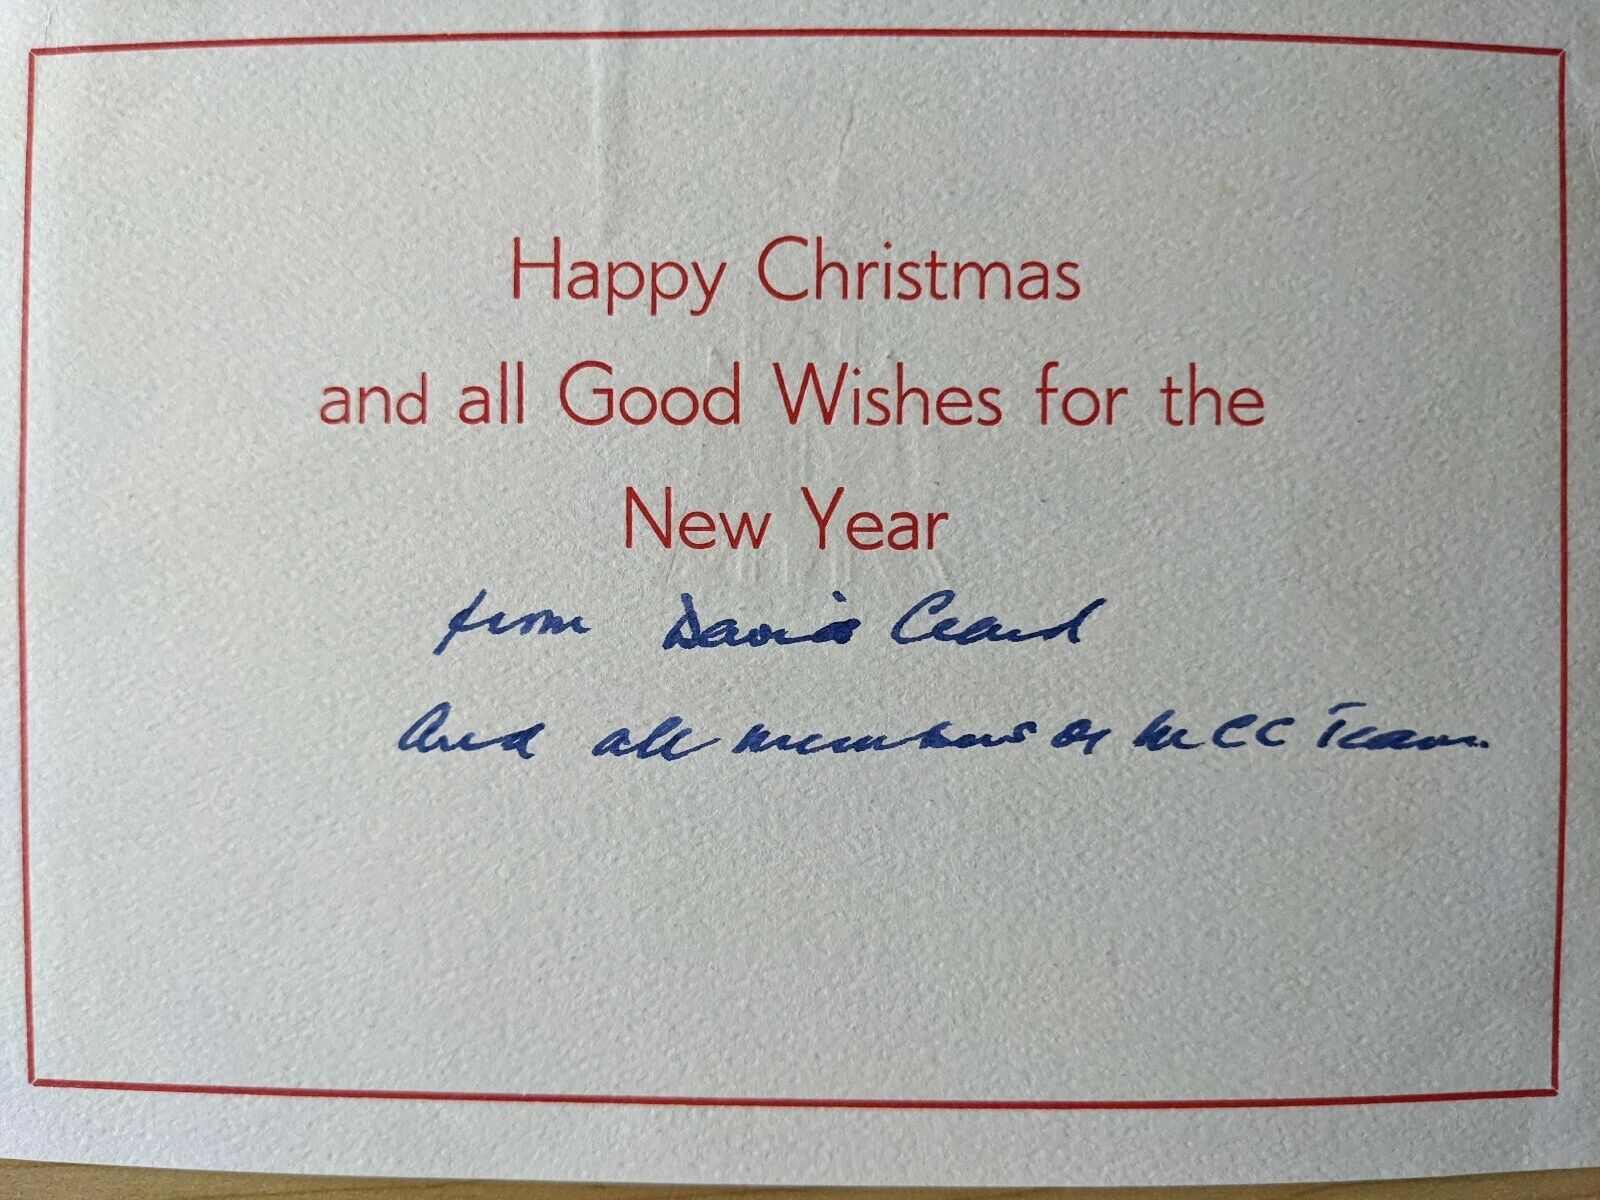 Happy Christmas
and all Good Wishes for the
New Year
from David Clark
And all members of MCC Team.